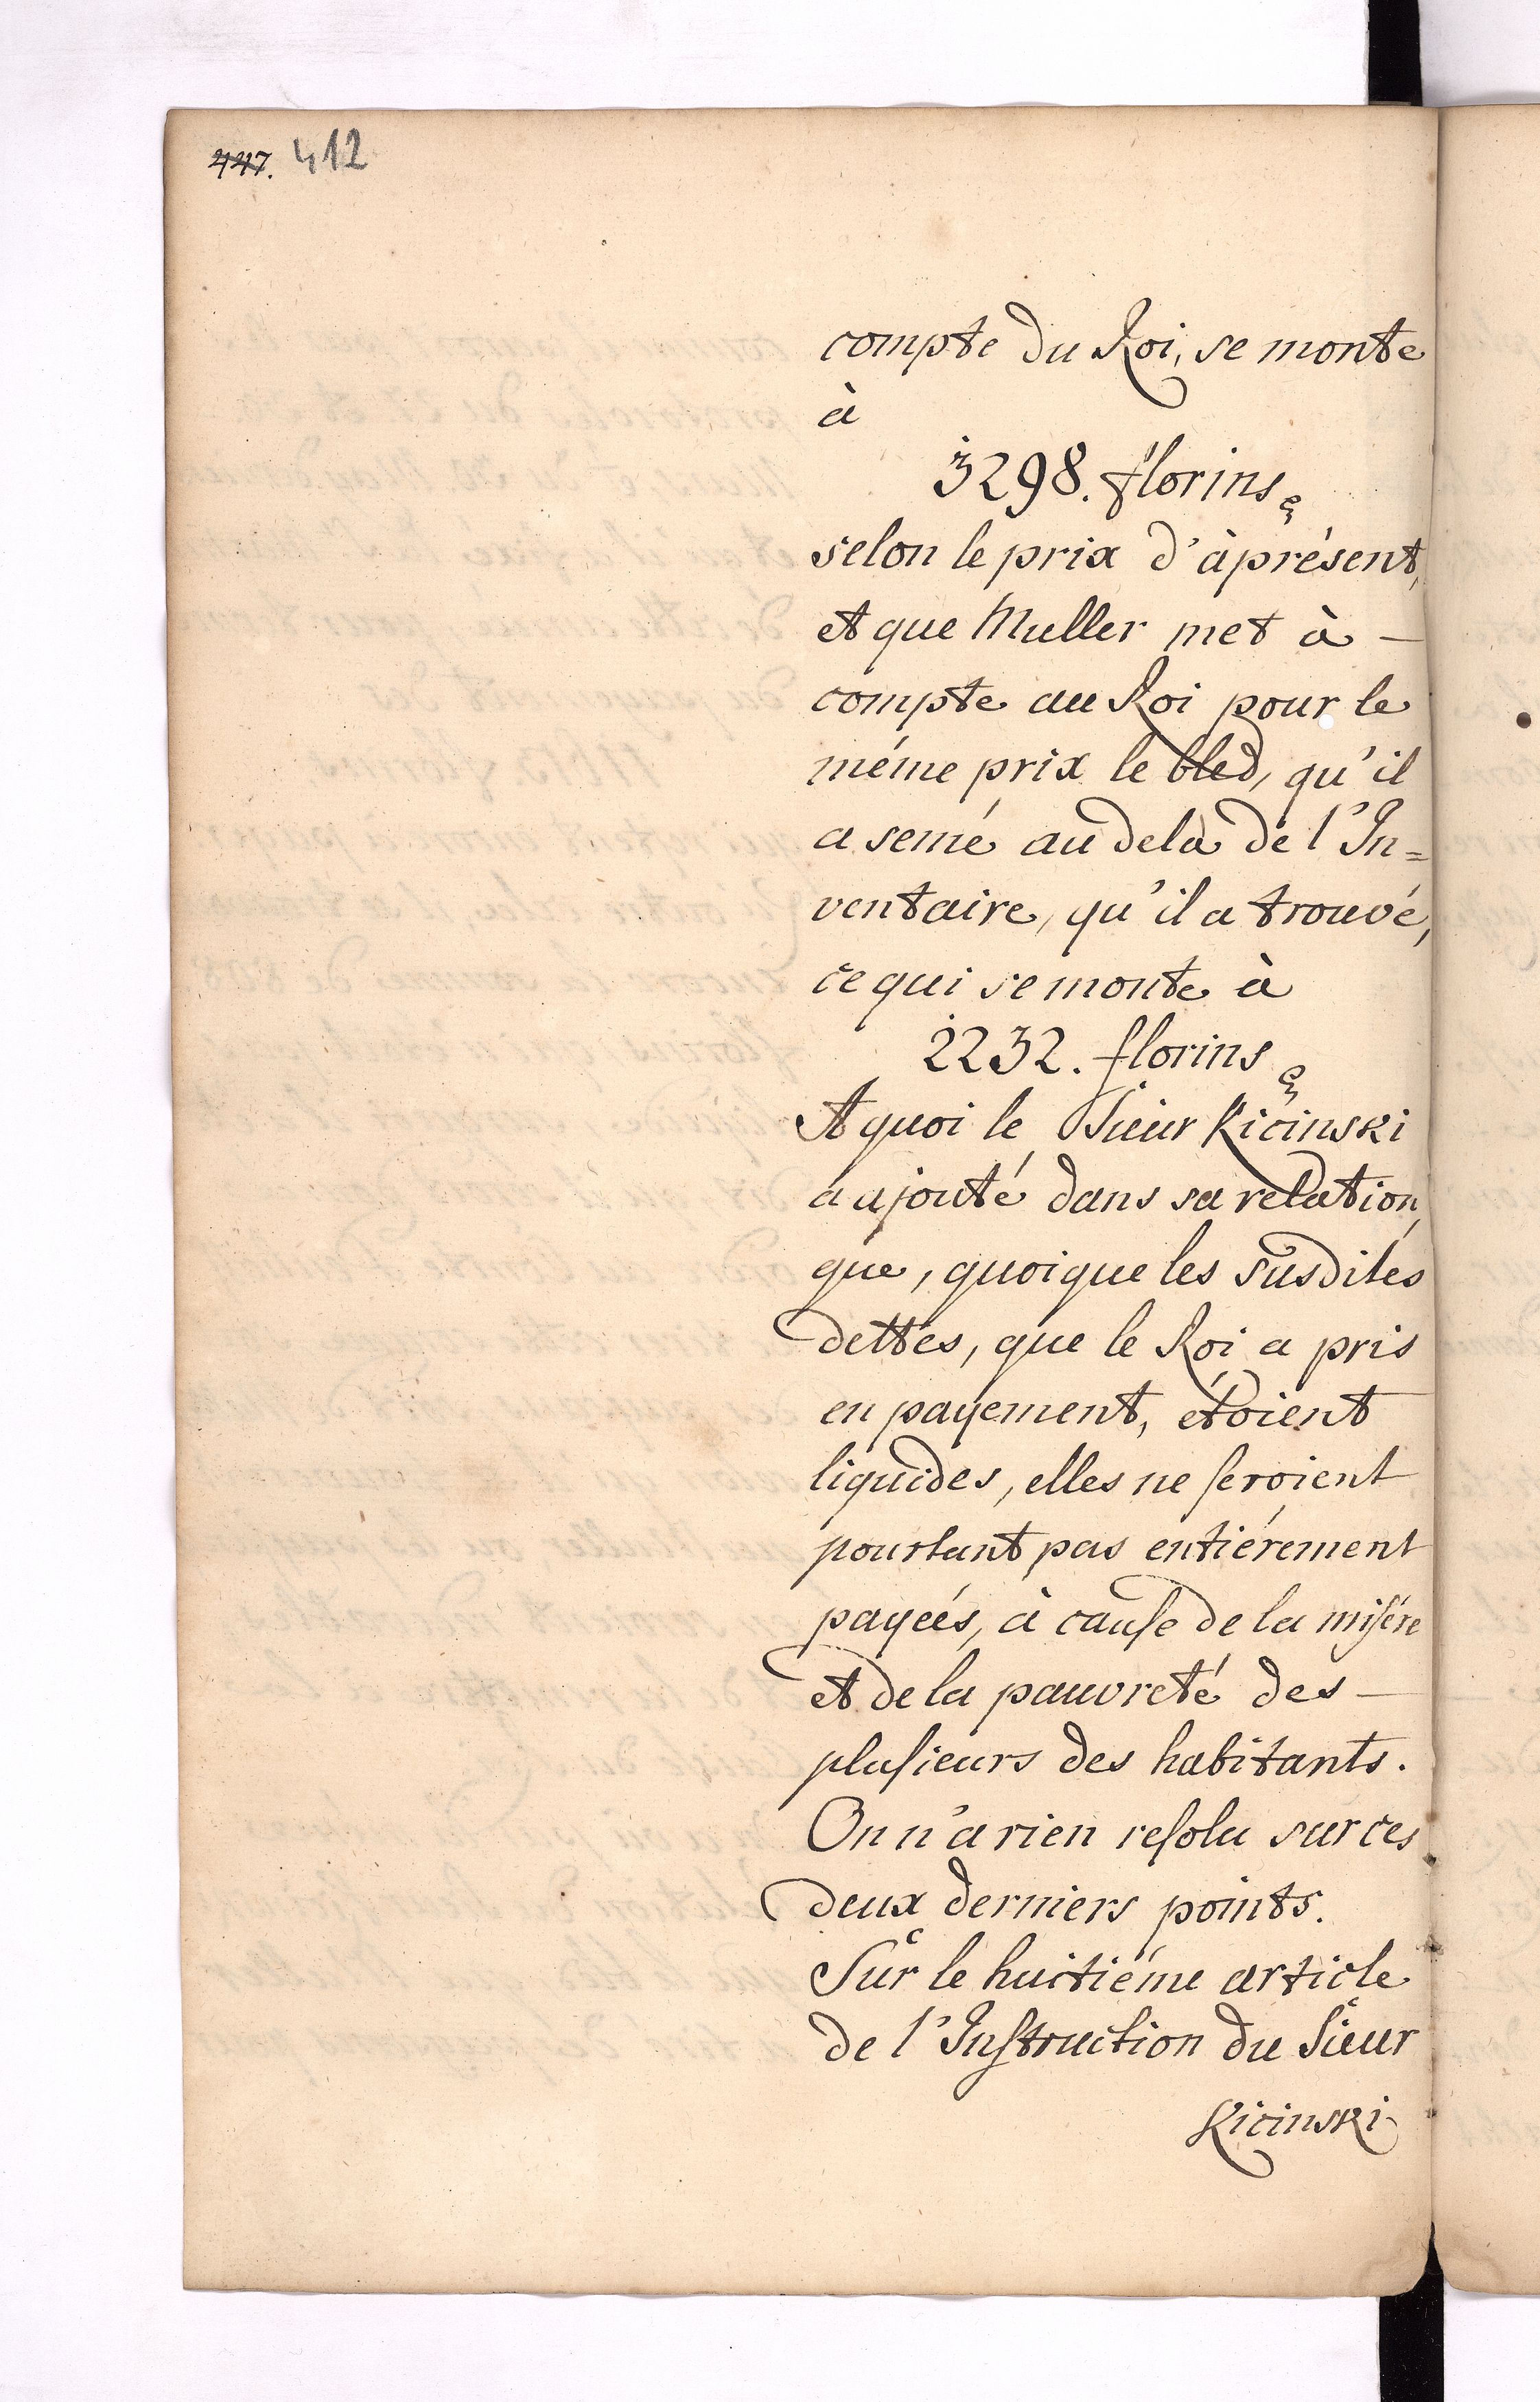 447. 412
compte du Roi, se monte
à
3298. florins
selon le prix d'àprésent,
et que Muller met à —
compte au Roi pour le
même prix le bled, qu'il
a semé au delà de l'In=
ventaire, qu'il a trouvé,
ce qui se monte à
2232. florins
A quoi le Sieur Kicinski
a ajouté dans sa relation,
que, quoique les susdites
dettes, que le Roi a pris
en payement, étoient
liquides, elles ne seroient
pourtant pas entiérement
payeés, à cause de la misére
et de la pauvreté des —
plusieurs des habitants.
On n'a rien resolu sur ces
deux derniers points.
Sur le huitiéme article
de l'Instruction du Sieur
Kicinski